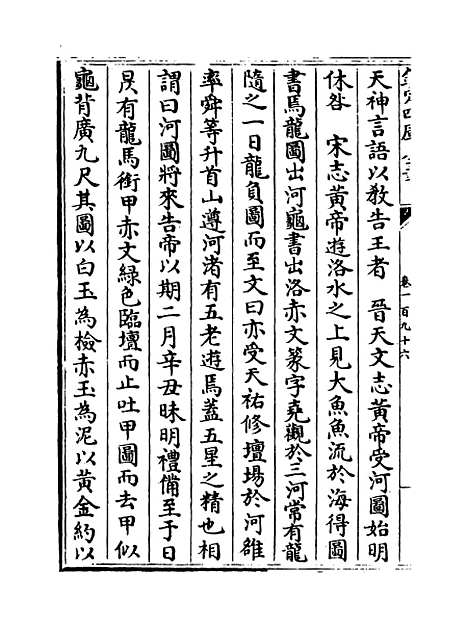 欽定四庫全書
卷一百九十六
天神言語以教告王者　晉天文志黃帝受河圖始明
休咎　宋志黃帝遊洛水之上見大魚魚流於海得圖
書焉龍圖出河龜書出洛赤文篆字堯觀於三河常有龍
隨之一日龍負圖而至文曰亦受天祐修壇場於河雒
率舜等升首山遵河渚有五老遊焉蓋五星之精也相
謂曰河圖將來告帝以期二月辛丑昧明禮備至于日
昃有龍馬銜甲赤文綠色臨壇而止吐甲圖而去甲似
龜背廣九尺其圖以白玉為檢赤玉為泥以黃金約以